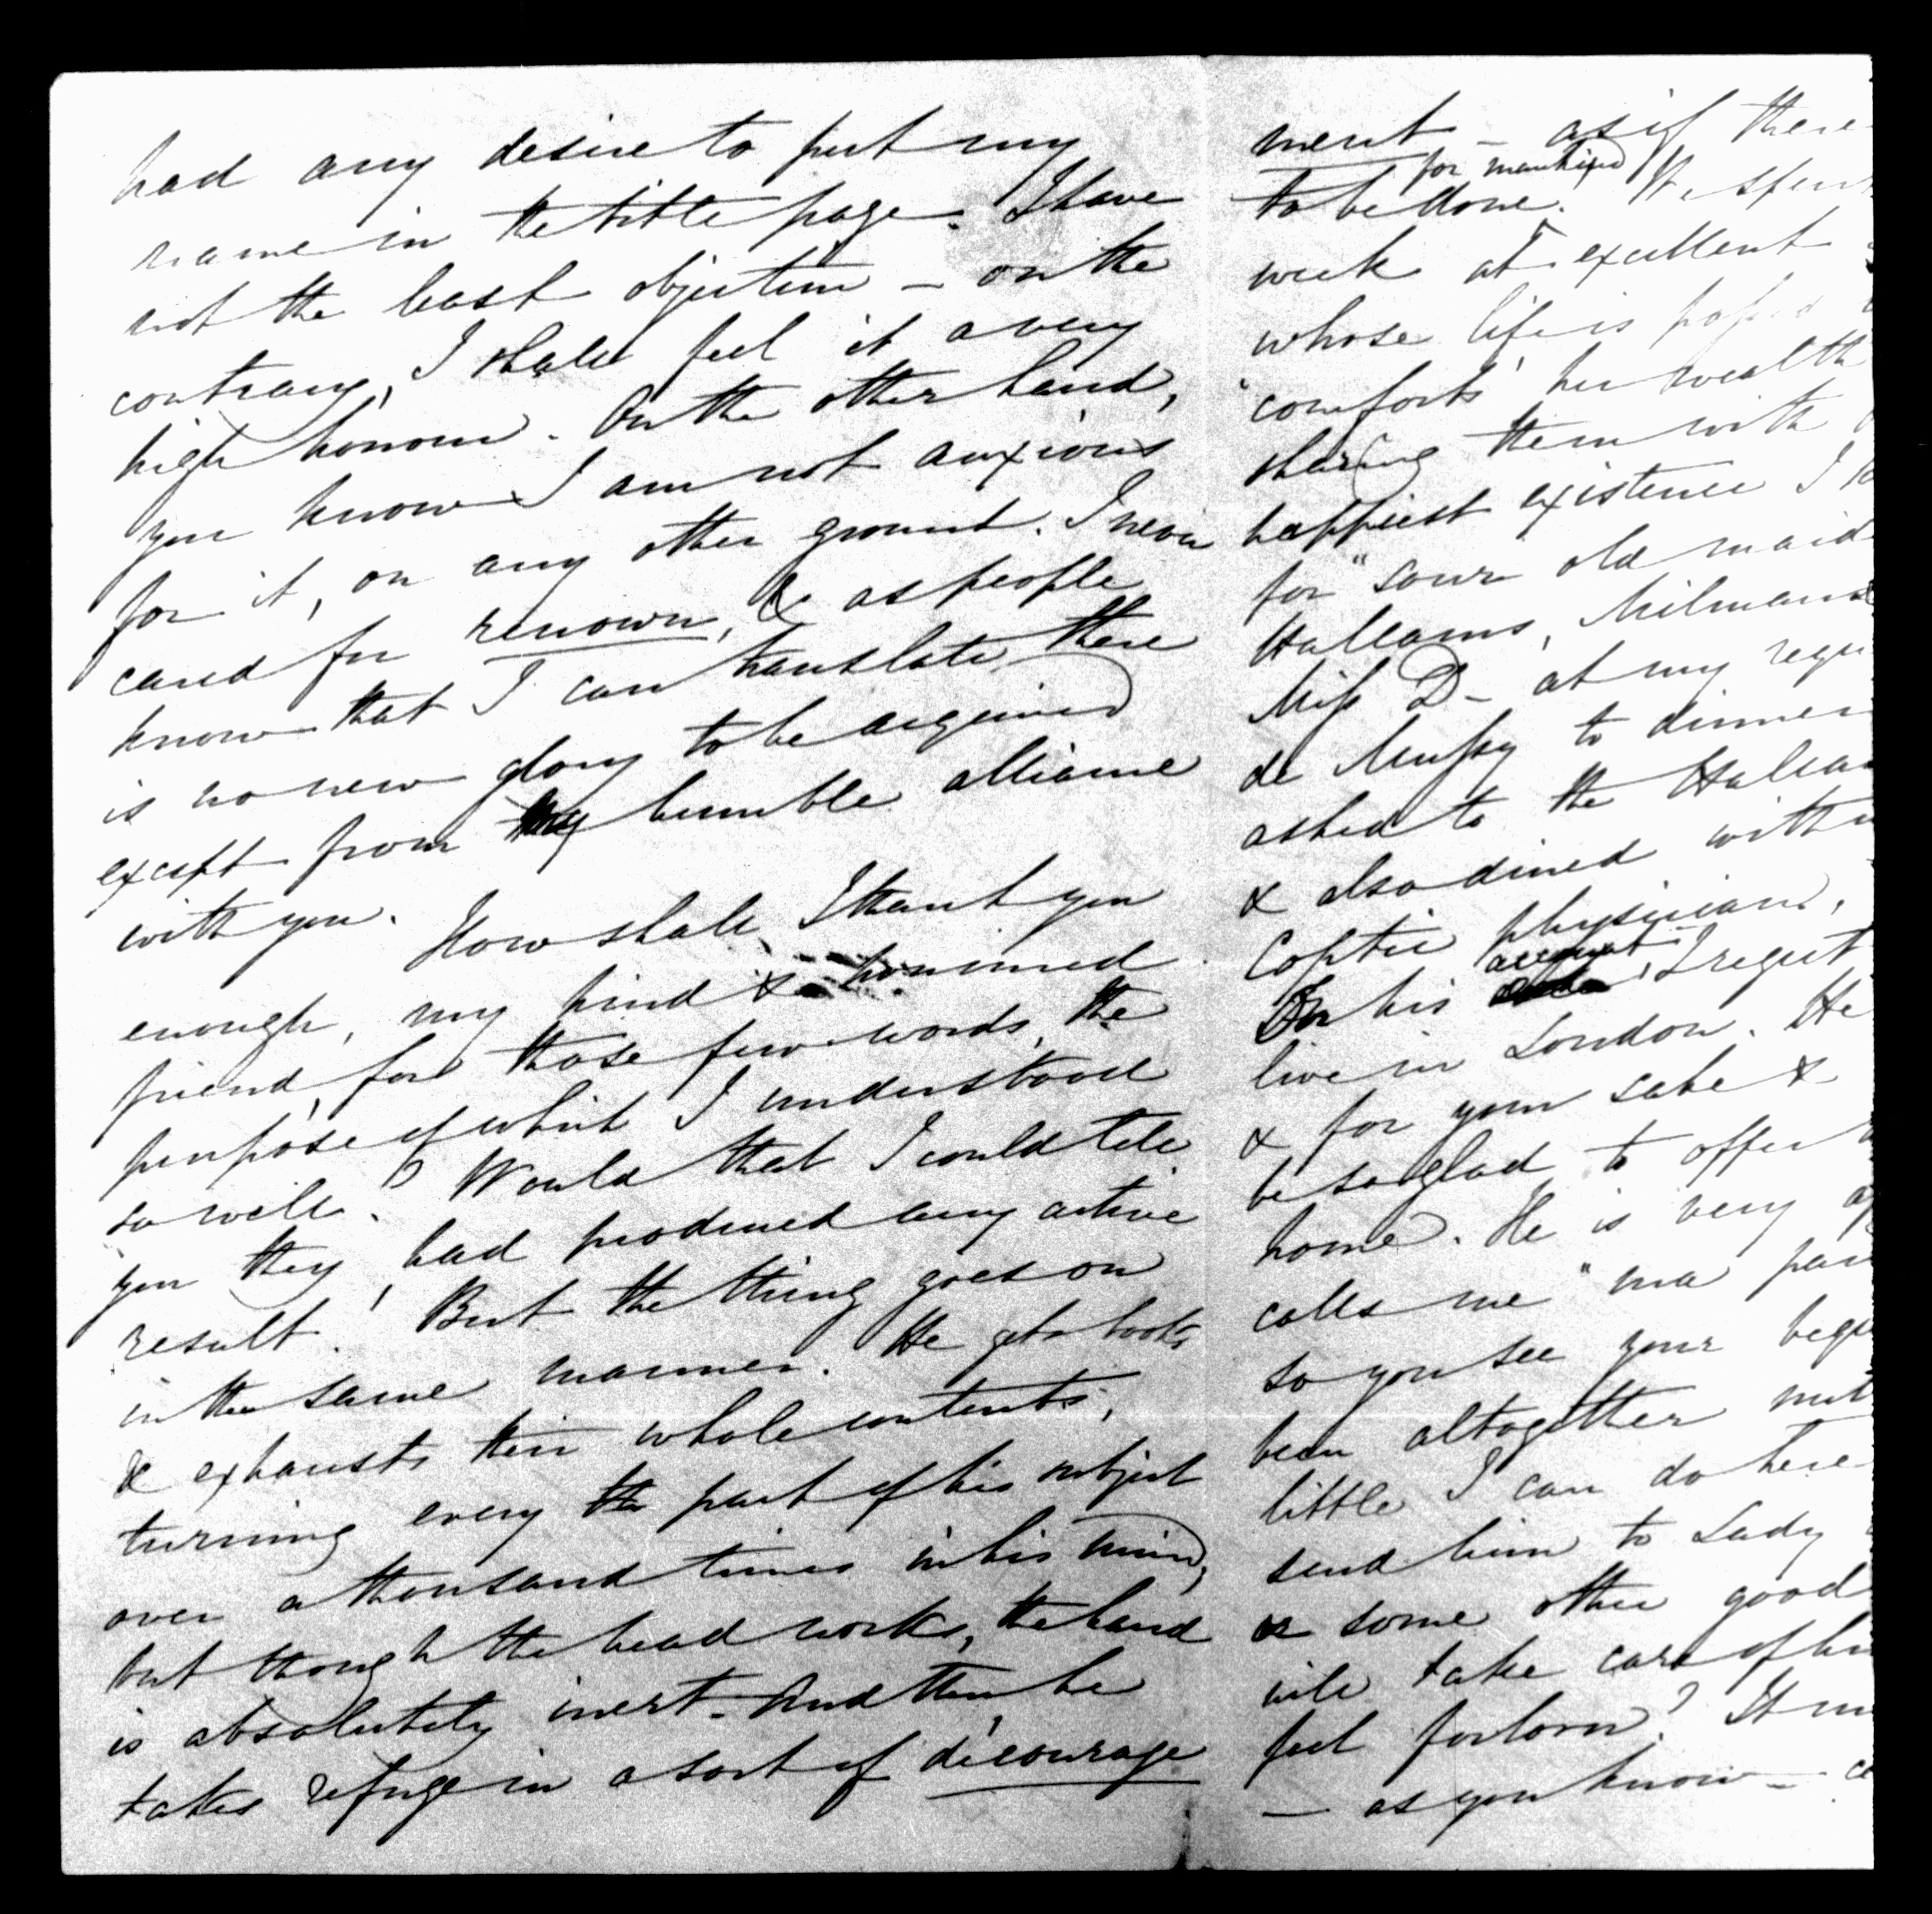 had any desire to put my
name in the title page. I have
not the least objection – on the
contrary, I shall feel it a very
high honour. On the other hand,
you know I am not anxious
for it, on any other ground. I never
cared for renown, & as people
know that I can translate, there
is no new glory to be acquired
except from my humble alliance
with you.
How shall I thank you
enough, my kind & honoured
friend, for those few words, the
purpose of which I understood
so well. Would that I could tell
you they had produced any active
result! But the thing goes on
in the same manner. He gets books,
& exhausts their whole contents,
turning every the part of his subject
over a thousand times in his mind,
but though the head works, the hand
is absolutely inert. And then he
takes refuge in a sort of décourage
ment – as if there
for mankind
to be done. We spent
week at excellent
whose life is passed
"comforts" her wealth
sharing them with
happiest existence I
for "sour old maid
Hallams, Milmans
Miss D– at my requ
de Mussy to dinner
asked to the Hallam
& also dined with
Coptic physician,
account
On his I regret
live in London. He
& for your sake &
be so glad to offer
home. He is very
calls me "ma
so you see your
been altogether
little I can do here
send him to Lady
or some other good
will take care of
feel forlorn? It
– as you know –